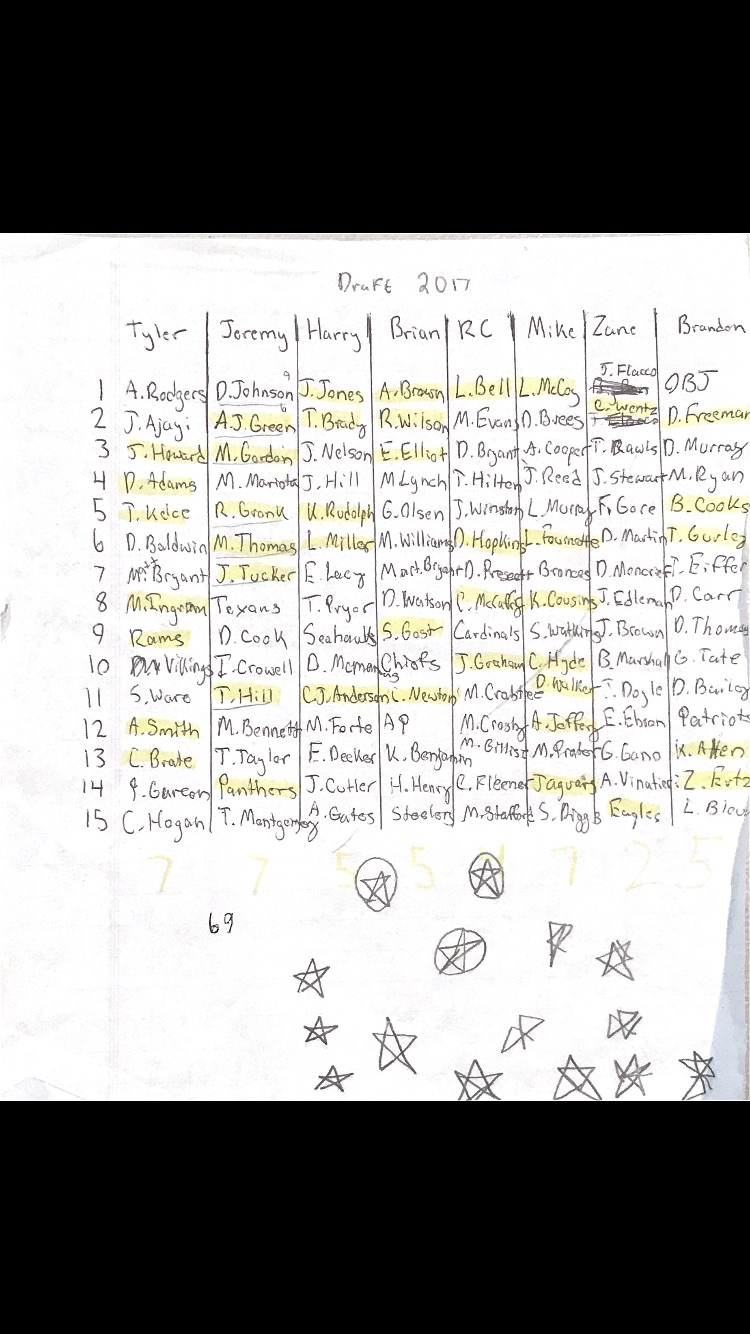 Draft 2017
Tyler Joremy Harry Brian RC Mike Zane Brandon
J. Flacco
1 A. Rodgers D. Johnson 9 J. Jones A. Brown L. Bell L. McCoy OBJ
2 J. Ajayi A.J. Green 6 T. Brady R. Wilson M. Evans D. Brees C. Wentz D. Freeman
3 J. Howard M. Gordon J. Nelson E. Elliot D. Bryant A. Cooper T. Rawls D. Murray
4 D. Adams M. Mariota J. Hill M Lynch T. Hilton J. Reed J. Stewart M. Ryan
5 T. Kelce R. Gronk K. Rudolph G. Olsen J. Winston L. Murray F. Gore B. Cooks
6 D. Baldwin M. Thomas L. Miller M. Williams D. Hopkins L. Fournette D. Martin T. Gurley
7 Bryant J. Tucker E. Lacy Mart. Bryant D. Prescott Broncos D. Moncrief T. Eiffer
8 M. Ingram Texans T. Pryor D. Watson C. McCaffry K. Cousins J. Edleman D. Carr
9 Rams D. Cook Seahawks S. Gost Cardinals S. Watkins J. Brown D. Thomas
10 Vikings I. Crowell D. Mcmanus Chiefs J. Graham C. Hyde B. Marshall G. Tate
11 S. Ware T. Hill C.J. Anderson C. Newton M. Crabtree D. Walker J. Doyle D. Bailey
12 A. Smith M. Bennett M. Forte AP M. Crosby A. Jeffery E. Ebron Patriots
13 C. Brate T. Taylor E. Decker K. Benjamin M. Gillist M. Prater G. Gano K. Allen
14 P. Garcon Panthers J. Cutler H. Henry C. Fleener Jaguars A. Vinatieri Z. Ertz
15 C. Hogan T. Montgomery A. Gates Steelers M. Stafford S. Diggs Eagles L. Blount
7 7 5 5 7 2 5
69